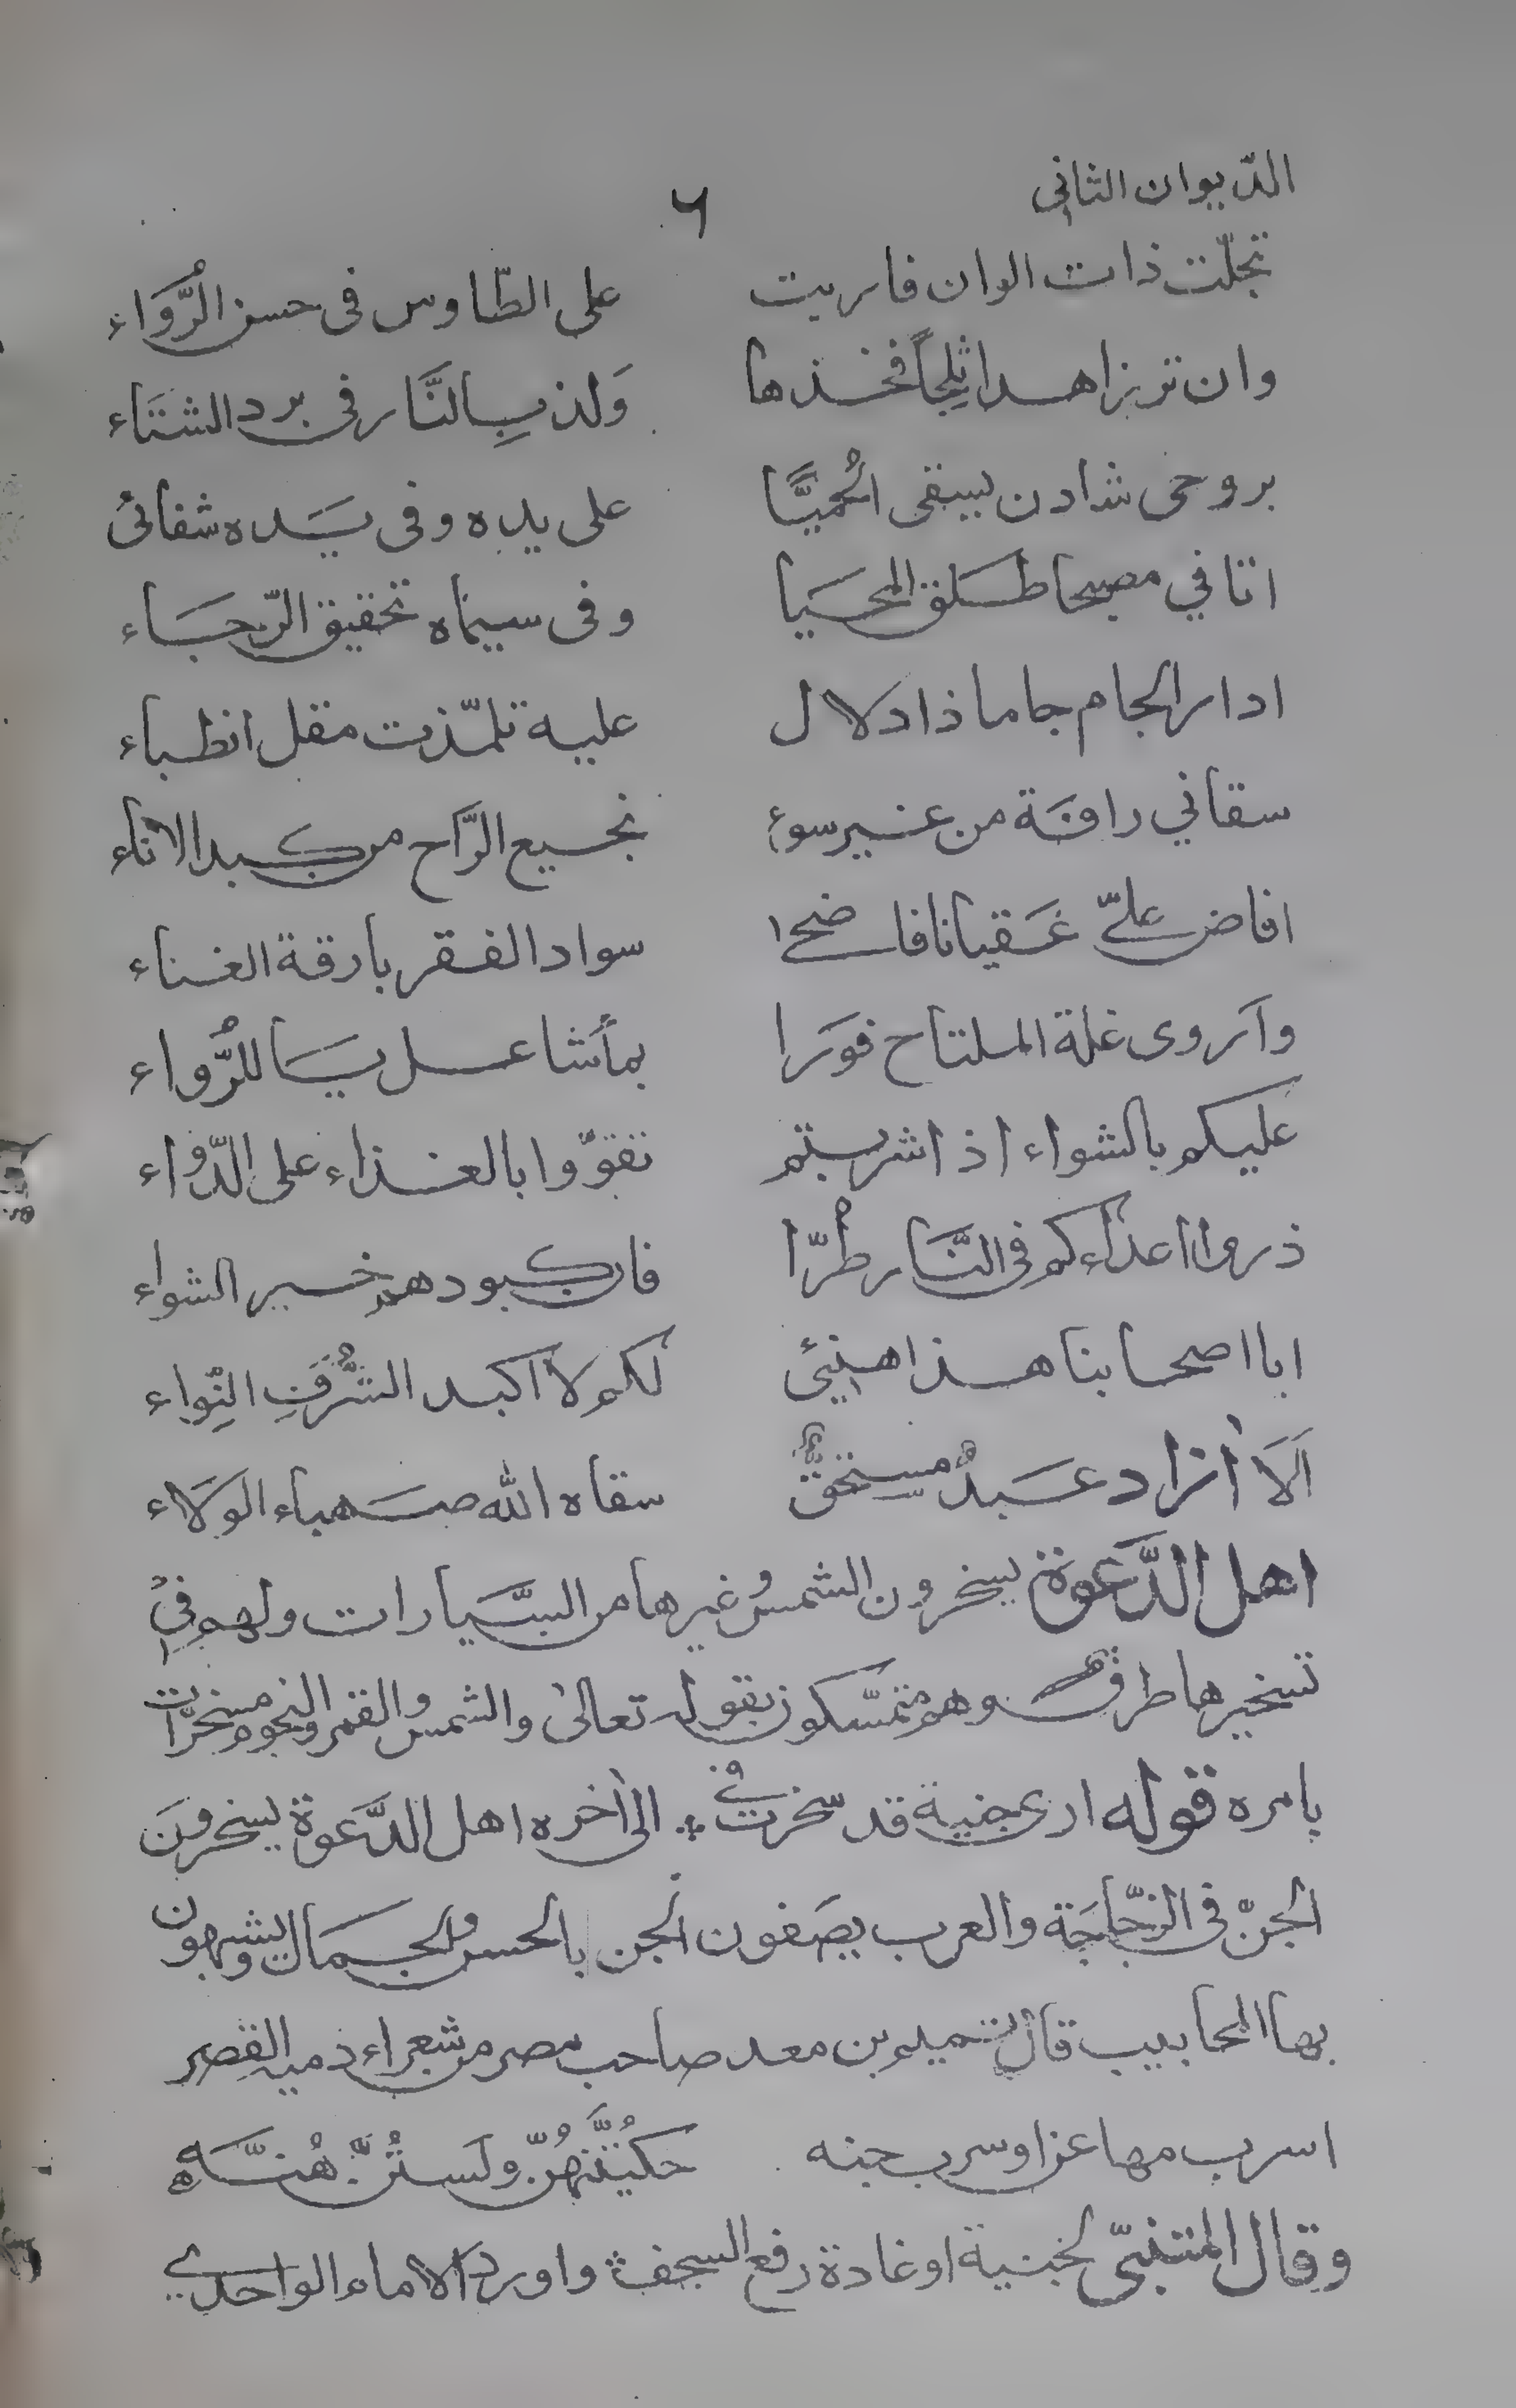 الدّيوان الثاني
٦
تجلّت ذات الوان فاربت على الطّاوس فى حسن الرُّوَاء
وان تر بزاهدا ثلجاً فخذها وَلذ بِالنَّار فى برد الشتاء
بروحى شادن يسقى الحُميَّا على يده وفى يَده شفائى
اتاني مصبحا طلق المحيا وفى سيماه تحقيق الرّجاء
ادار الجام جاما ذا دلال عليه تلمّذت مقل الظباء
سقاني رافة من غير سوء نجيع الرَّاح من كبد الاناء
افاض علىّ عقيانا فاضحى سواد الفقر بارقة الغناء
وآروى غلة الملتاح فورا بمأشا عسليا للرُّواء
عليكم بالشواء اذا شربتم تقوّوا بالغذاء على الدّواء
ذروا اعداءكم فى النَّار طُرّا فان كبودهم خير الشواء
ايا اصحابنا هذا هنيئ لكم لا اكبد الشُّرُفِ النِّواء
اَلَا آزاد عبدٌ مستحقٌّ سقاه الله صهباء الوَلَاء
اهل الدَّعوة يسخرون الشمس وغيرها من السَّيارات ولهم في
تسخيرها طرق وهم متمسّكون بقوله تعالى والشمس والقمر والنجوم مسخرات
بامره قوله ارى جنية قد سخرت الى آخره اهل الدَّعوة يسخرونَ
الجنّ فى الزجّاجَة والعرب يصَفون الجن بالحسن والجمال ويشبهون
بها المحابيب قال تميم بن معد صاحب مصر من شعراء دمية القصر
اسرب مها عن او سرب جنه حكيُتنَّهُنّ ولَستُنَّ هُنَّه
وقال المتنبّى لجنية او غادة رفع السجف واورد الامام الواحدي